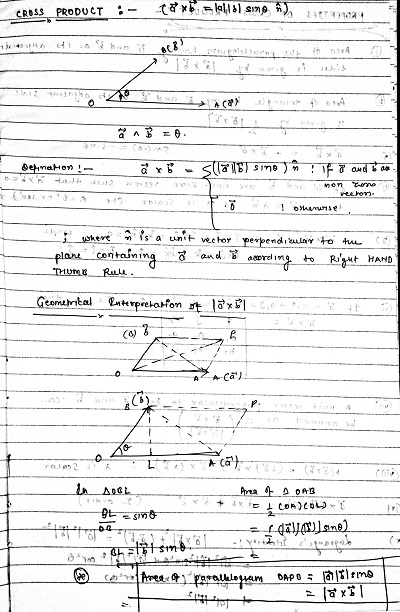 CROSS PRODUCT :- (a⃗ × b⃗ = |a||b| sinθ n̂)
B(b⃗)
θ
O A(a⃗)
a⃗ ∧ b⃗ = θ.
Definition :- a⃗ × b⃗ = { (|a⃗||b⃗| sinθ) n̂ ; if a⃗ and b⃗ are
non zero
vectors.
0⃗ ; otherwise.
; where n̂ is a unit vector perpendicular to the
plane containing a⃗ and b⃗ according to Right HAND
THUMB Rule.
Geometrical Interpretation of |a⃗×b⃗|
(B) b⃗
O A A(a⃗)
B(b⃗) P.
θ
O L A(a⃗)
In ΔOBL Area of Δ OAB
BL/OB = sinθ = 1/2 (OA)(BL)
= 1/2 |a⃗||b⃗| sinθ)
BL = |b⃗| sinθ =
Area of parallelogram OAPB = |a⃗||b⃗| sinθ
= = |a⃗×b⃗|